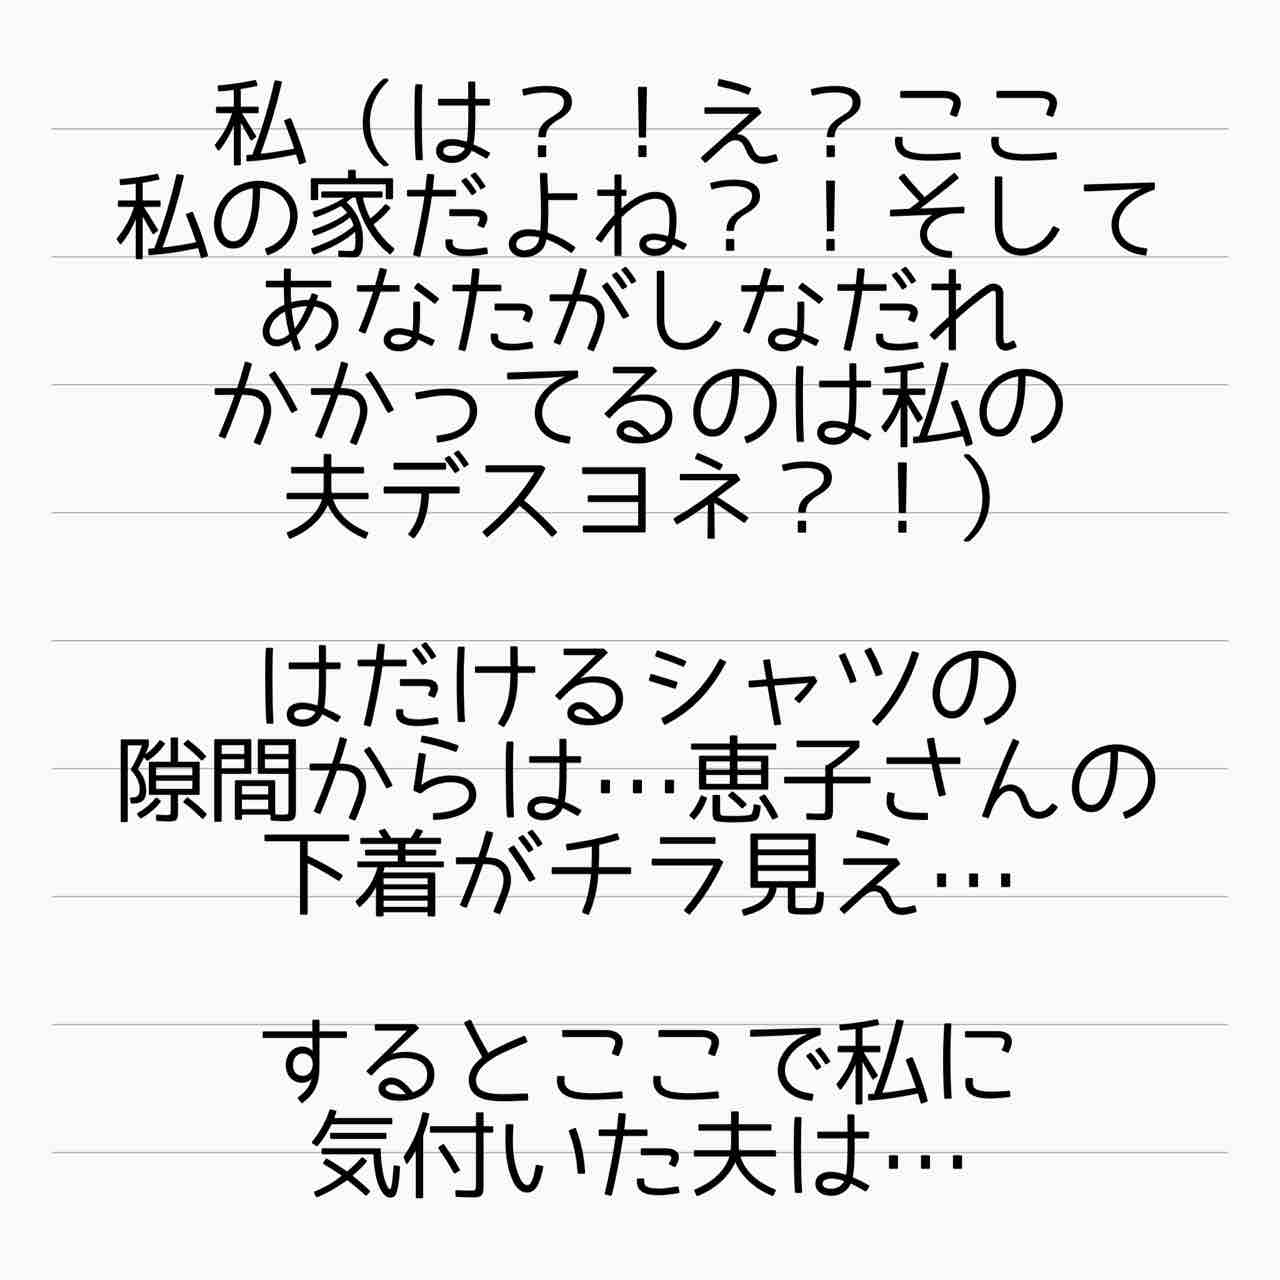 私（は？！え？ここ
私の家だよね？！そして
あなたがしなだれ
かかってるのは私の
夫デスヨネ？！）
はだけるシャツの
隙間からは…恵子さんの
下着がチラ見え…
するとここで私に
気付いた夫は…